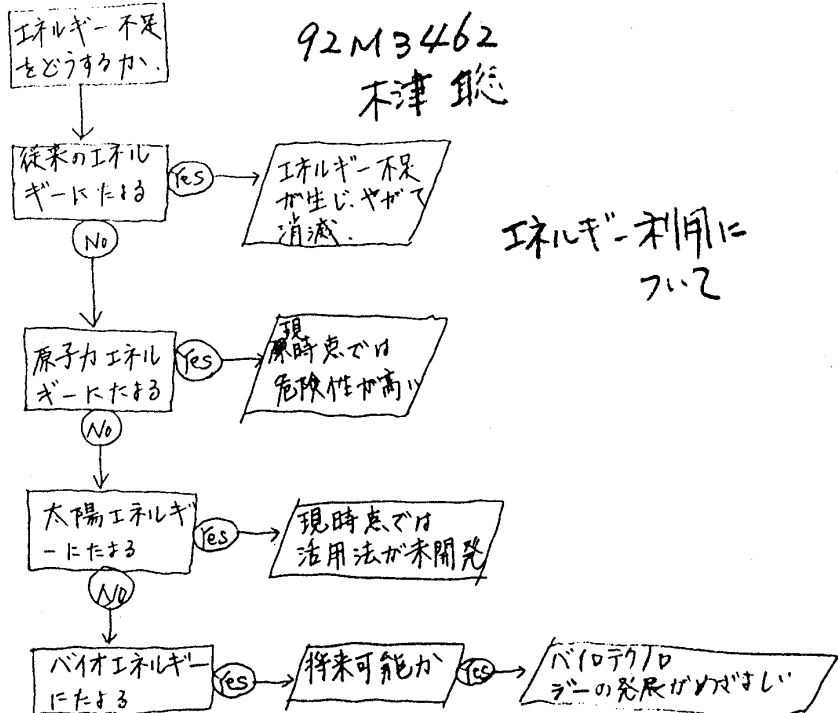 エネルギー不足
をどうするか.
92M3462
木津 聡
従来のエネル
ギーにたよる
Yes
エネルギー不足
が生じ、やがて
消滅.
No
エネルギー利用に
ついて
原子力エネル
ギーにたよる
Yes
現時点では
危険性が高い
No
太陽エネルギ
ーにたよる
Yes
現時点では
活用法が未開発
No
バイオエネルギー
にたよる
Yes
将来可能か
Yes
バイロテクノロ
ジーの発展がめざましい